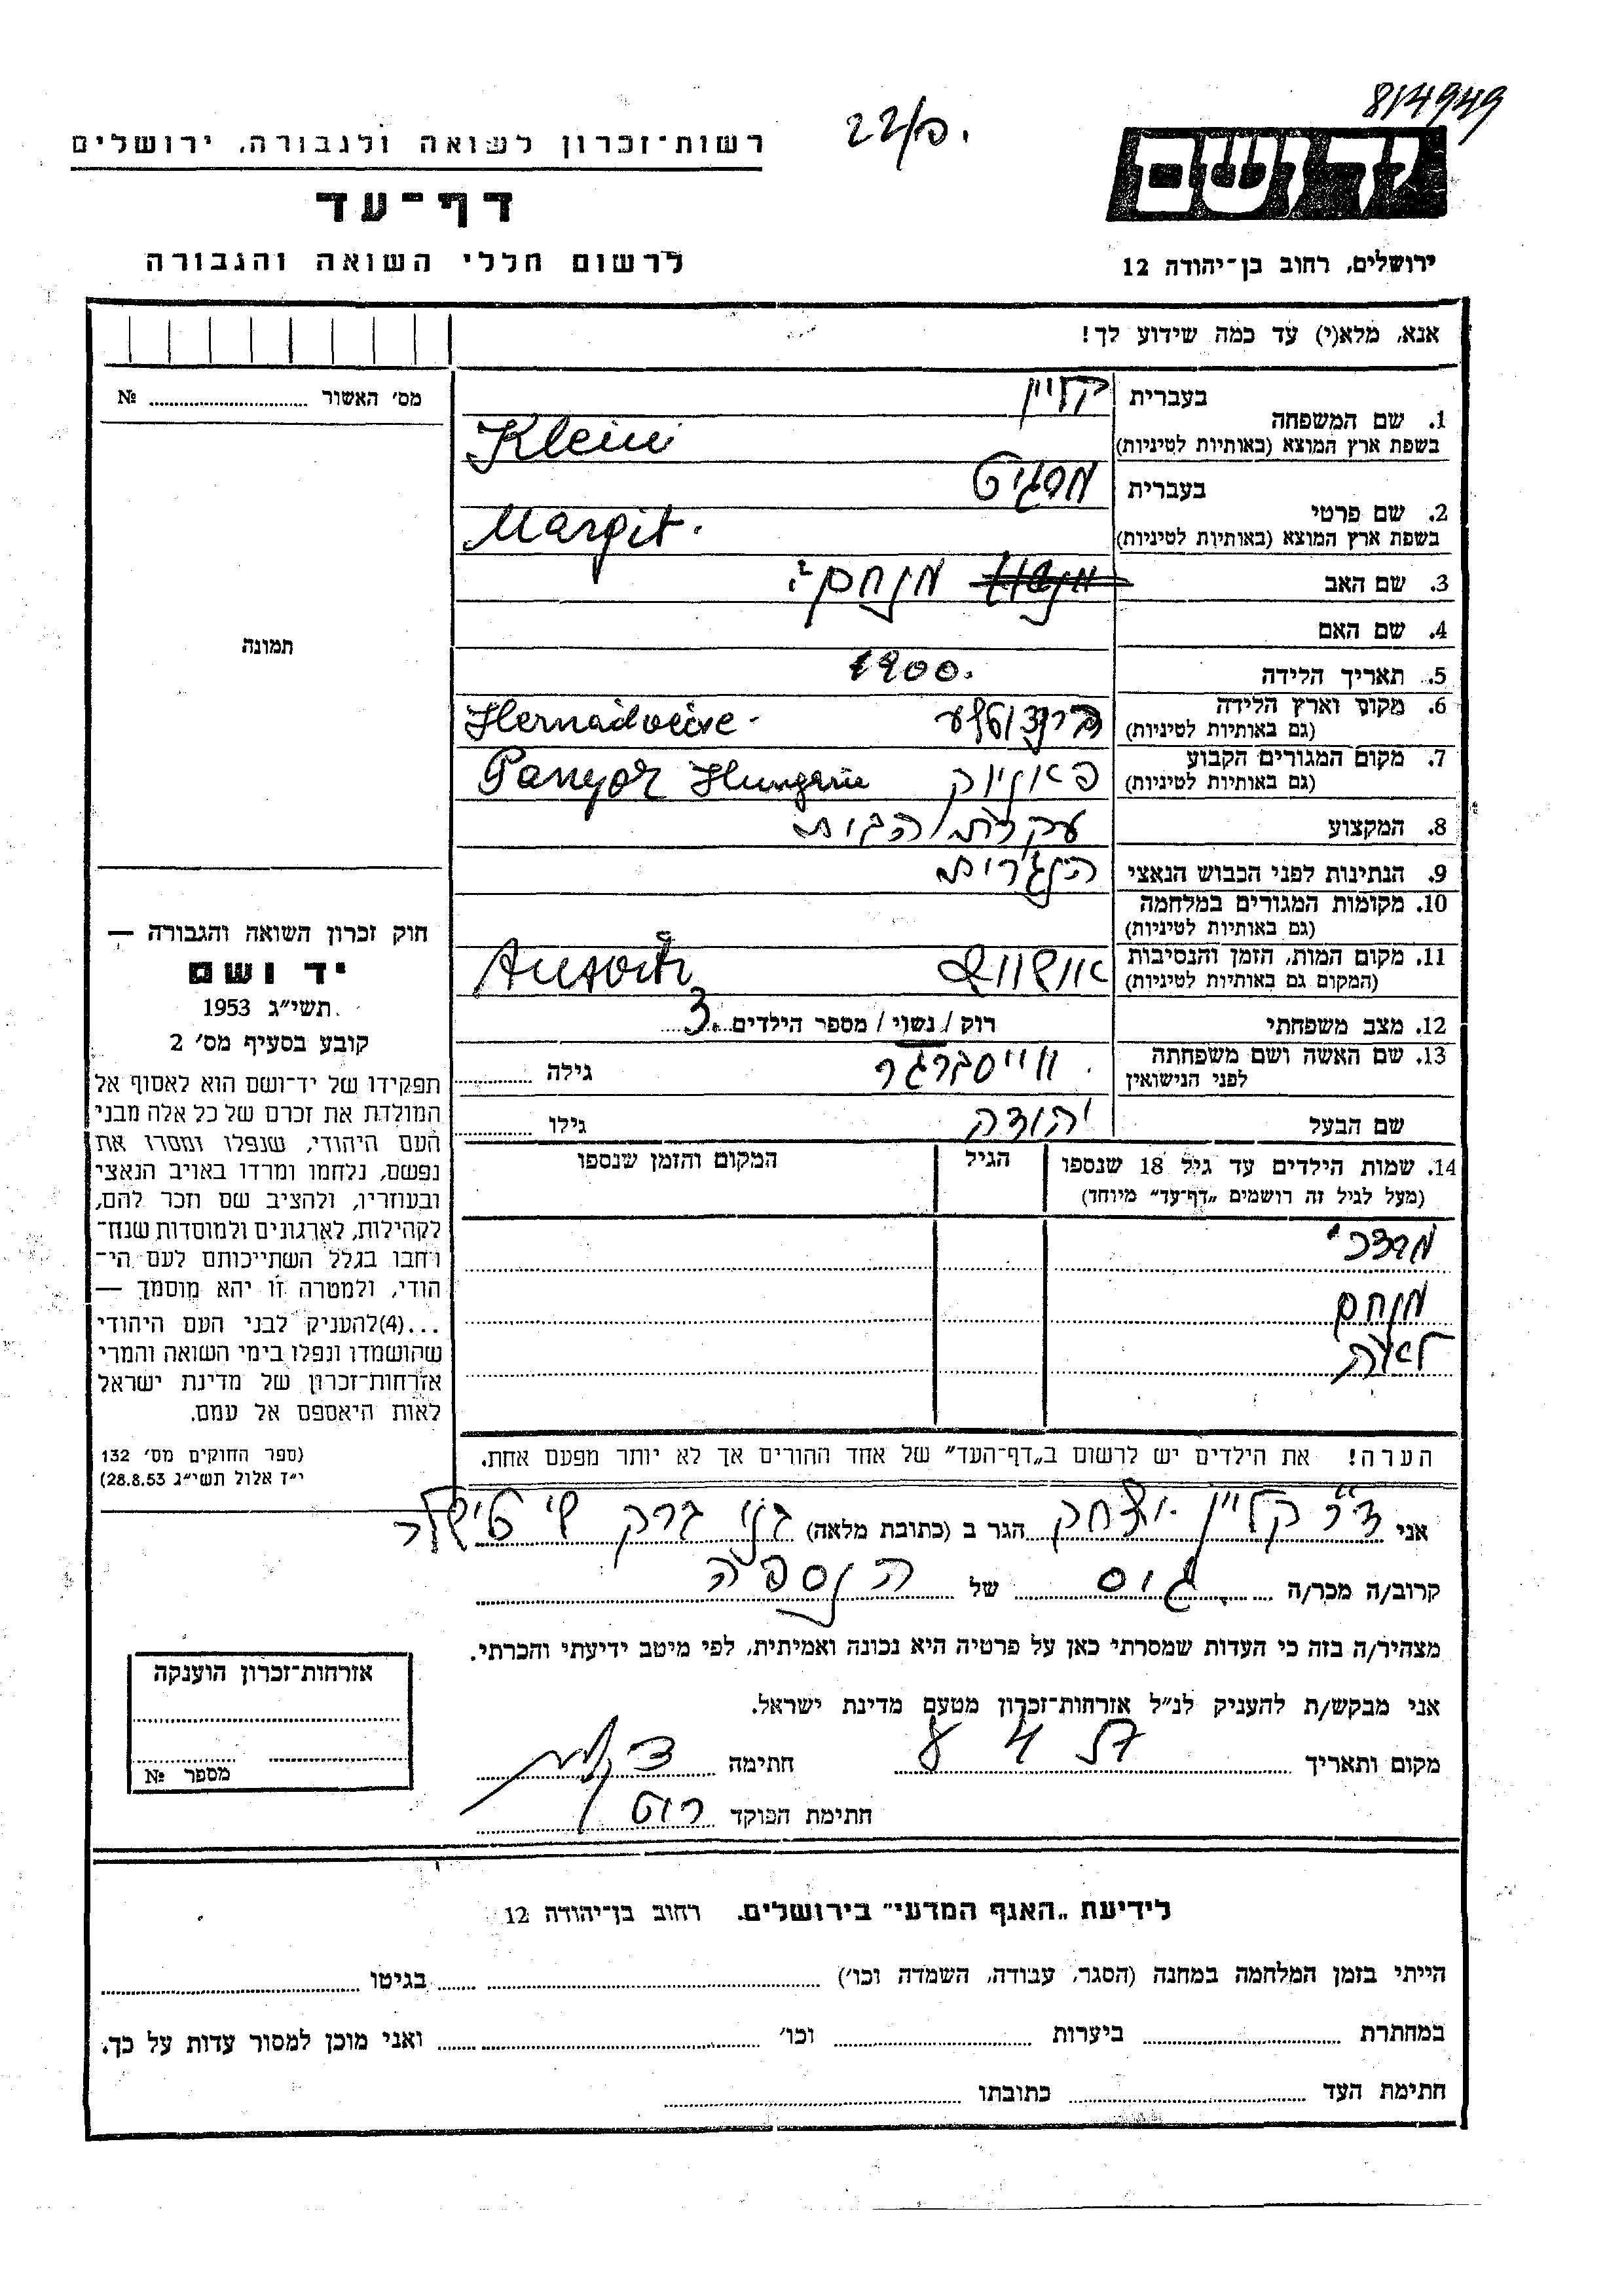 8/14949
22/פ.
רשות-זכרון לשואה ולגבורה, ירושלים
דף-עד
לרשום חללי השואה והגבורה
יד ושם
ירושלים, רחוב בן-יהודה 12
אנא, מלא(י) עד כמה שידוע לך!
מס׳ האשור № 
1. שם המשפחה
בעברית קליין
בשפת ארץ המוצא (באותיות לטיניות) Klein
2. שם פרטי
בעברית מרגיט
בשפת ארץ המוצא (באותיות לטיניות) Margit.
3. שם האב מנחם
4. שם האם
5. תאריך הלידה 1900.
6. מקום וארץ הלידה
(גם באותיות לטיניות) Hernádvécse
7. מקום המגורים הקבוע
(גם באותיות לטיניות) פאניוק Panyok Hungarie
8. המקצוע עקרת הבית
9. הנתינות לפני הכבוש הנאצי הונגרית
10. מקומות המגורים במלחמה
(גם באותיות לטיניות)
11. מקום המות, הזמן והנסיבות
(המקום גם באותיות לטיניות) אושוויץ
12. מצב משפחתי רוק / נשוי / מספר הילדים 3
13. שם האשה ושם משפחתה
לפני הנישואין וייסברגר גילה
שם הבעל יהודה גילו
14. שמות הילדים עד גיל 18 שנספו הגיל המקום והזמן שנספו
(מעל לגיל זה רושמים „דף-עד״ מיוחד)
מרדכי
מנחם
לאה
הערה! את הילדים יש לרשום ב„דף-העד״ של אחד ההורים אך לא יותר מפעם אחת.
תמונה
חוק זכרון השואה והגבורה —
יד ושם
תשי״ג 1953
קובע בסעיף מס׳ 2
תפקידו של יד-ושם הוא לאסוף אל
המולדת את זכרם של כל אלה מבני
העם היהודי, שנפלו ומסרו את
נפשם, נלחמו ומרדו באויב הנאצי
ובעוזריו, ולהציב שם וזכר להם,
לקהילות, לארגונים ולמוסדות שנח-
רבו בגלל השתייכותם לעם הי-
הודי, ולמטרה זו יהא מוסמך —
...(4)להעניק לבני העם היהודי
שהושמדו ונפלו בימי השואה והמרי
אזרחות-זכרון של מדינת ישראל
לאות היאספם אל עמם.
(ספר החוקים מס׳ 132
י״ז אלול תשי״ג 28.8.53)
אני ד״ר קליין יצחק הגר ב (כתובת מלאה) בני ברק
קרוב/ה מכר/ה גיס של הנספה
מצהיר/ה בזה כי העדות שמסרתי כאן על פרטיה היא נכונה ואמיתית, לפי מיטב ידיעתי והכרתי.
אני מבקש/ת להעניק לנ״ל אזרחות-זכרון מטעם מדינת ישראל.
מקום ותאריך חתימה
חתימת הפוקד רוט
אזרחות-זכרון הוענקה
מספר №
לידיעת „האגף המדעי״ בירושלים. רחוב בן-יהודה 12
הייתי בזמן המלחמה במחנה (הסגר, עבודה, השמדה וכו׳) בגיטו
במחתרת ביערות וכו׳ ואני מוכן למסור עדות על כך.
חתימת העד כתובתו